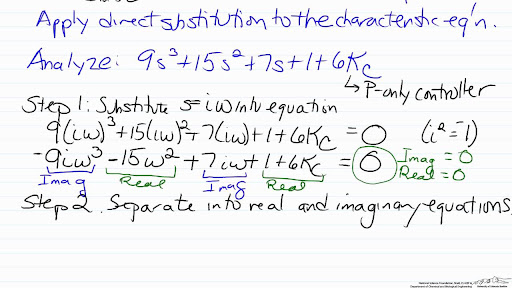 Apply direct substitution to the characteristic eq'n.
Analyze: 9s³+15s²+7s+1+6Kc
↳ P-only controller
Step 1: Substitute s=iω into equation
9(iω)³+15(iω)²+7(iω)+1+6Kc = 0 (i²=-1)
-9iω³-15ω²+7iω+1+6Kc = 0 Imag = 0
Imag Real Imag Real Real = 0
Step 2. Separate into real and imaginary equations